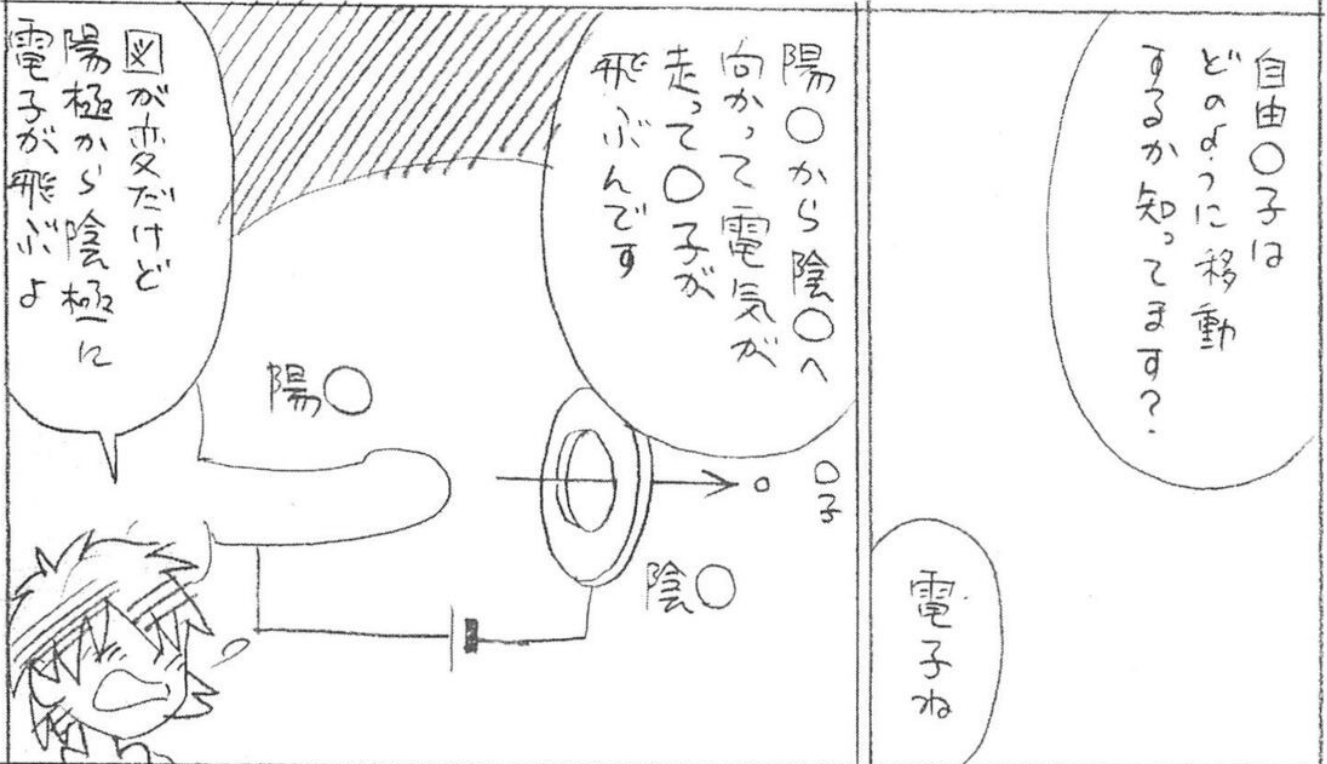 自由〇子は
どのように移動
するか知ってます？
電子ね
陽〇から陰〇へ
向かって電気が
走って〇子が
飛ぶんです
〇子
陽〇
陰〇
図が変だけど
陽極から陰極に
電子が飛ぶよ